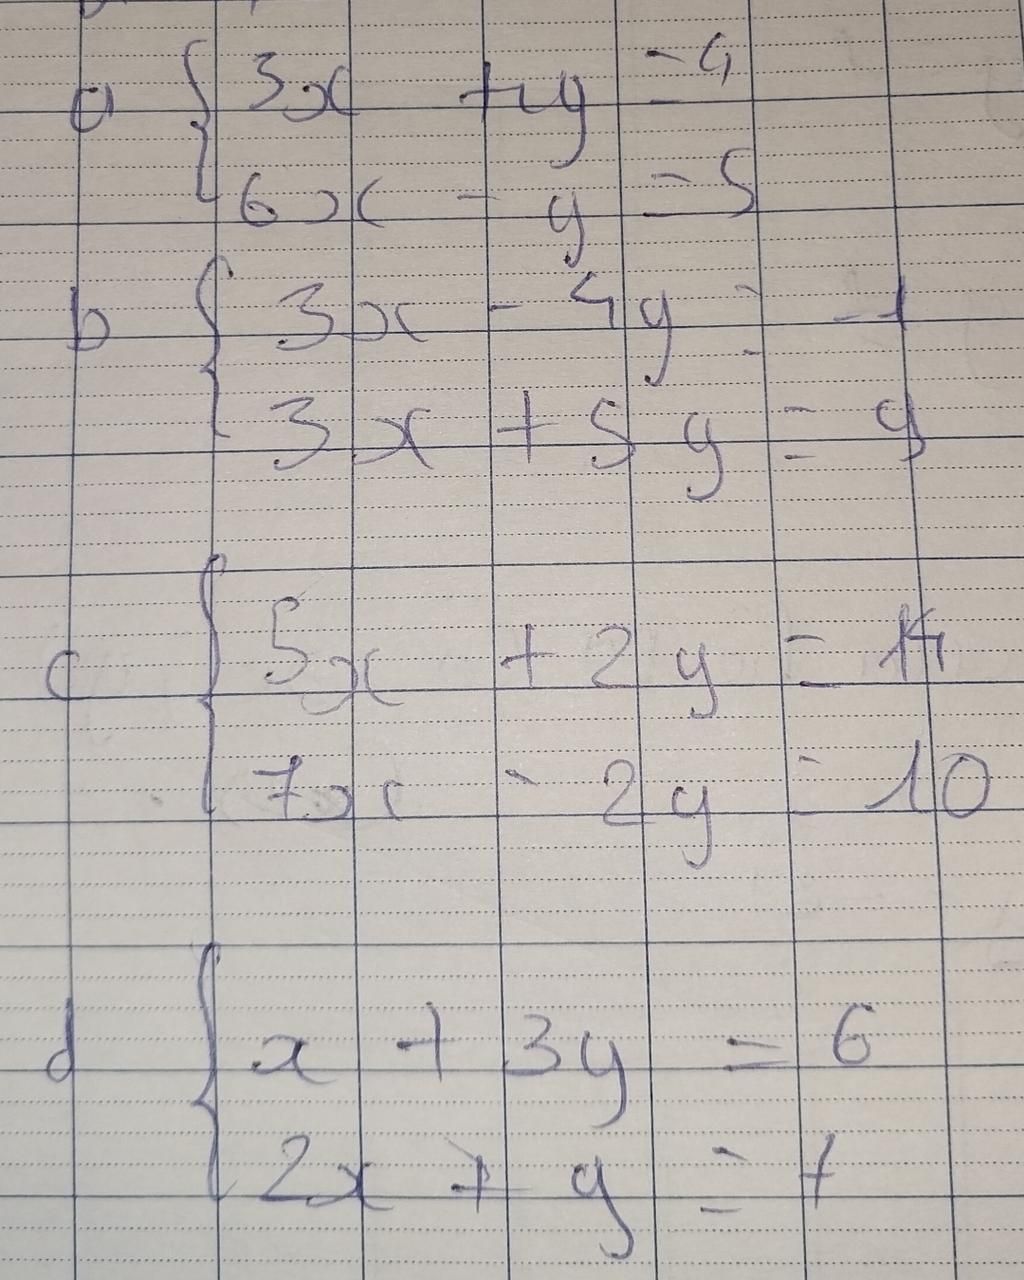 a { 3x + y = 4
6x - y = 5
b { 3x - 4y = -1
3x + 5y = 9
c { 5x + 2y = 14
7x - 2y = 10
d { x + 3y = 6
2x + y =